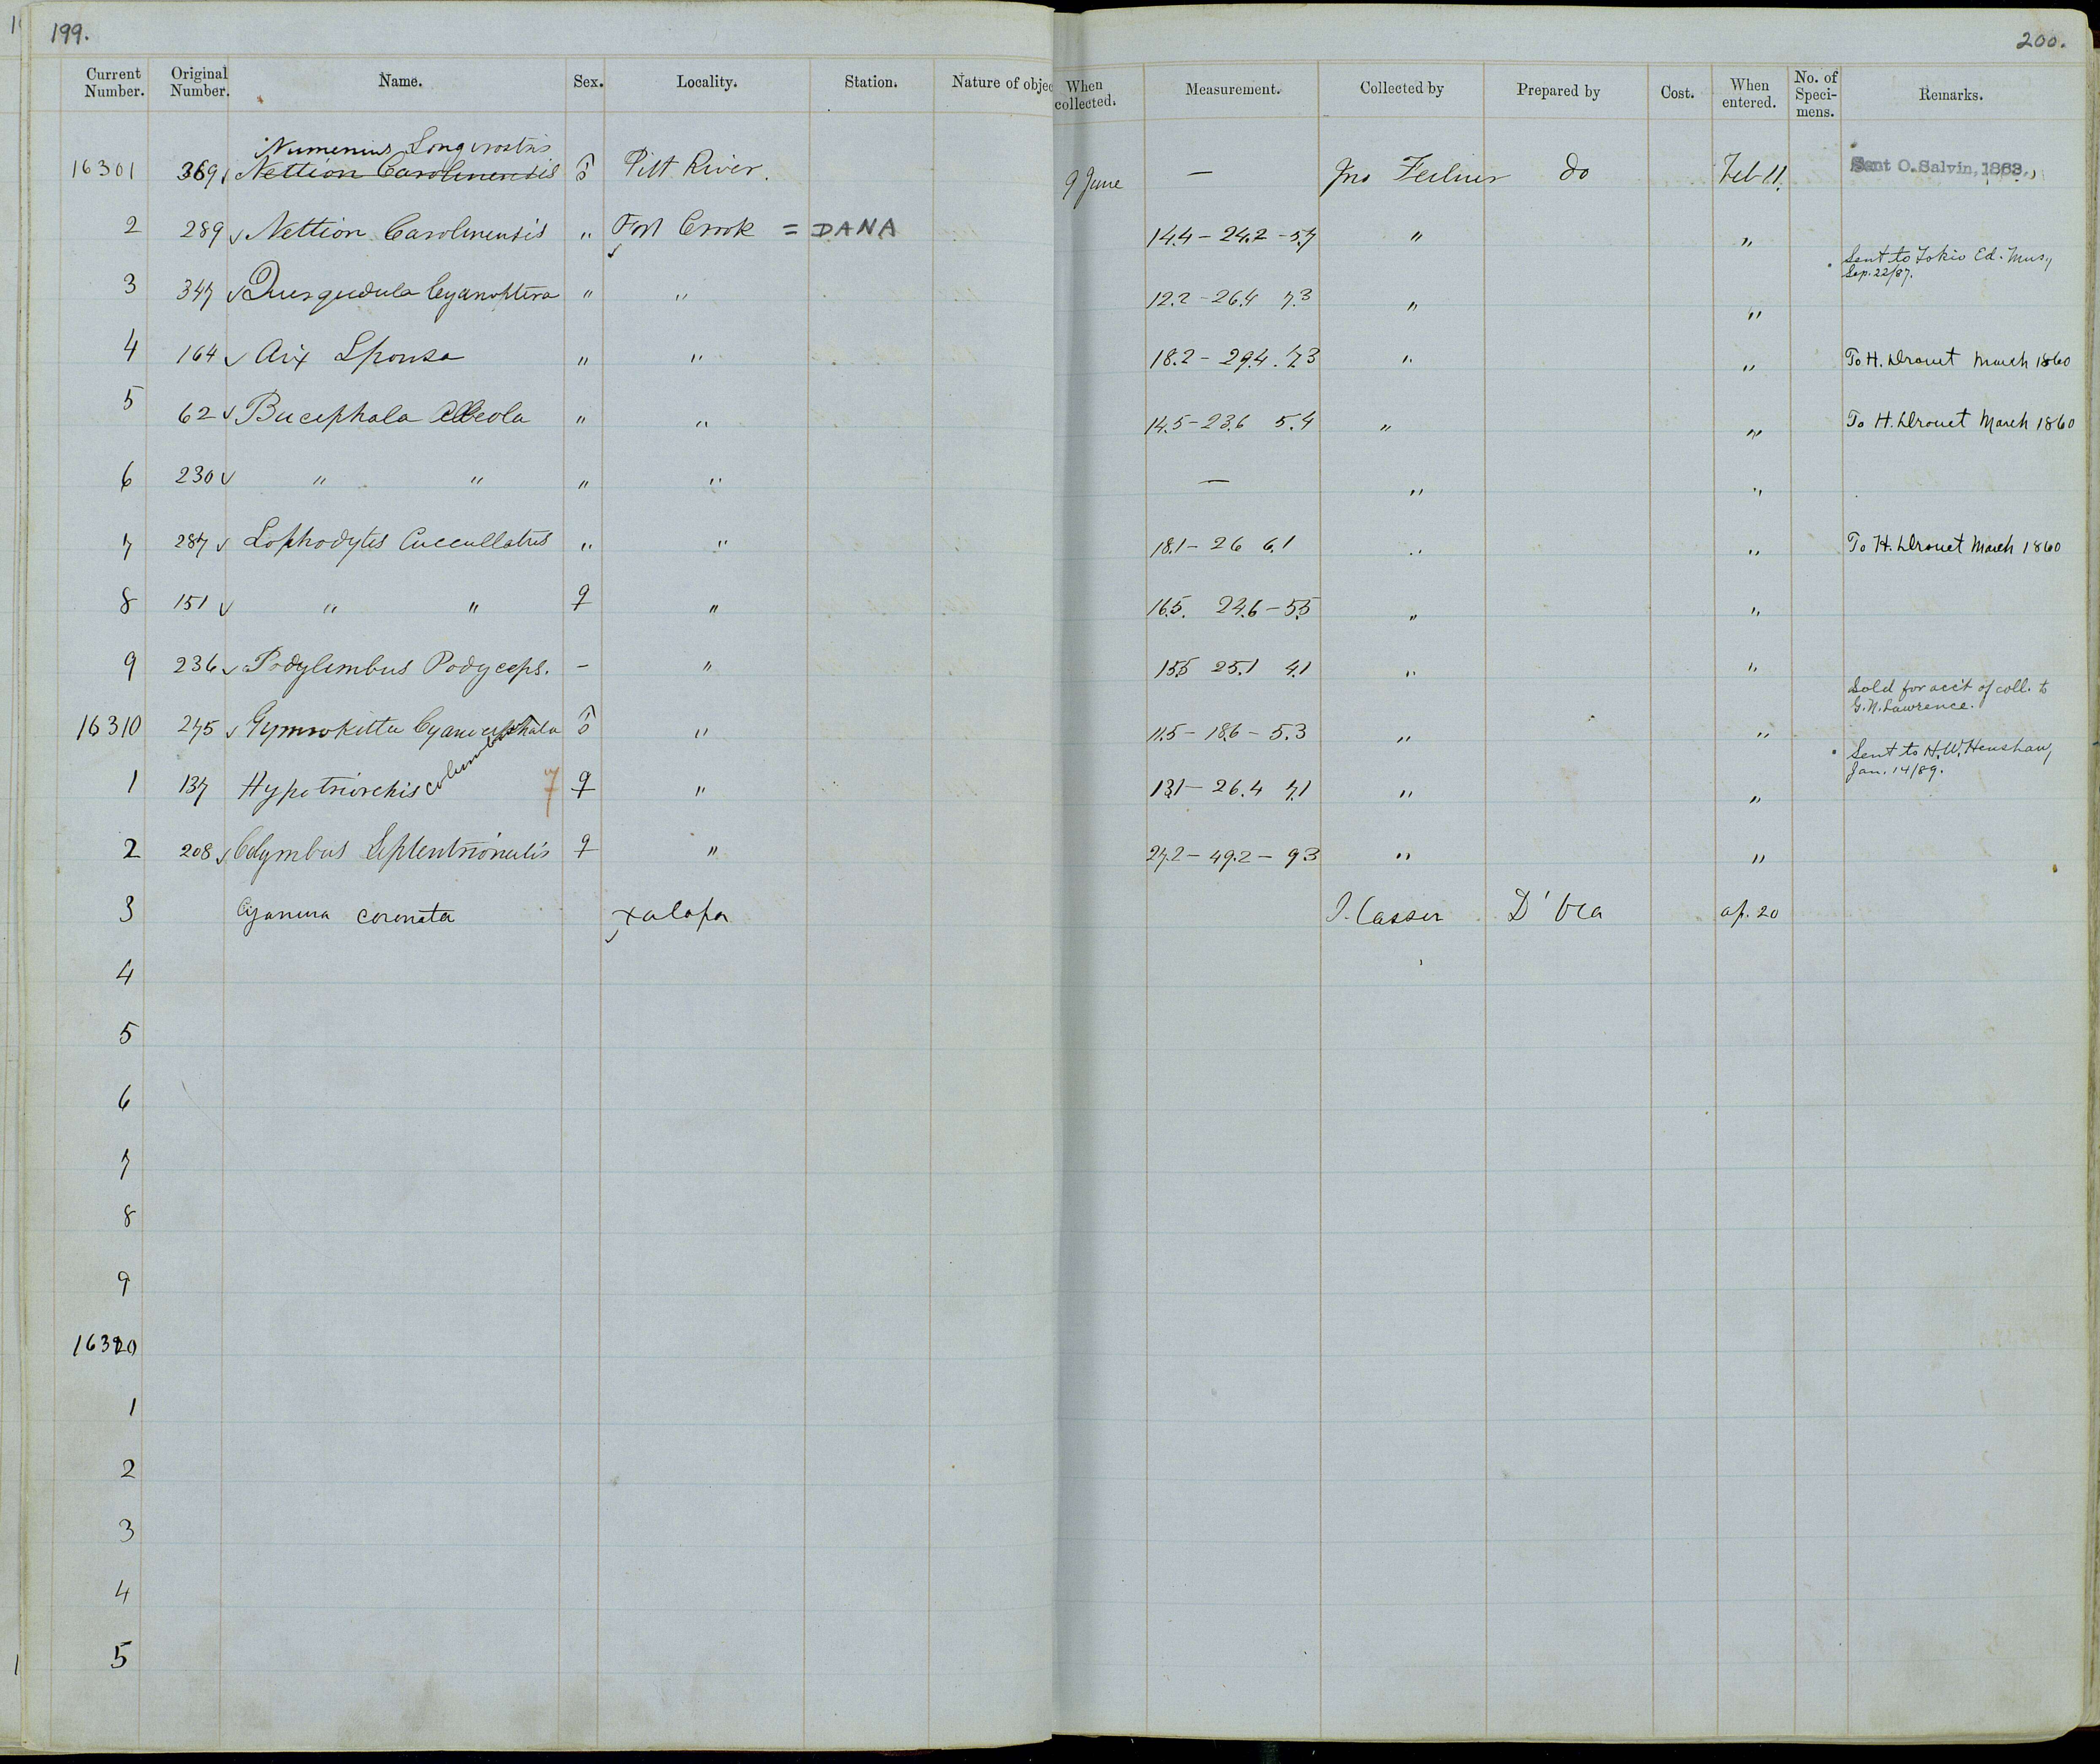 199.
200.
Current Number. Original Number. Name. Sex. Locality. Station. Nature of objec When collected. Measurement. Collected by Prepared by Cost. When entered. No. of Speci-mens. Remarks.
Numenius Longirostris
16301 369 Nettion Carolinensis ♂ Pitt River. 9 June — Jno Feilner do Feb 11. Sent O. Salvin, 1863.
2 289 ✓ Nettion Carolinensis " Fort Crook = DANA 14.4 – 24.2 – 5.7 " "
3 347 ✓ Querquedula Cyanoptera " " 12.2 – 26.4 7.3 " " Sent to Tokio Ed. Mus., Sep. 22/87.
4 164 ✓ Aix Sponsa " " 18.2 – 29.4 . 7.3 " " To H. Drouet March 1860
5 62 ✓ Bucephala Albeola " " 14.5 – 23.6 5.4 " " To H. Drouet March 1860
6 230 ✓ " " " " — " "
7 287 ✓ Lophodytes Cuccullatus " " 18.1 – 26 6.1 " " To H. Drouet March 1860
8 151 ✓ " " ♀ " 16.5. 24.6 – 5.5 " "
9 236 ✓ Podylimbus Podyceps. – " 15.5 25.1 4.1 " "
16310 275 ✓ Gymnokitta Cyanocephala ♂ " 11.5 – 18.6 – 5.3 " " Sold for acc't of coll. to G. N. Lawrence.
1 137 Hypotriorchis columbarius ♀ " 13.1 – 26.4 7.1 " " Sent to H. W. Henshaw, Jan. 14/89.
2 208 ✓ Colymbus Septentrionalis ♀ " 27.2 – 49.2 – 9.3 " "
3 Cyanura coronata Xalapa J. Cassin D'Oca ap. 20
4
5
6
7
8
9
16320
1
2
3
4
5